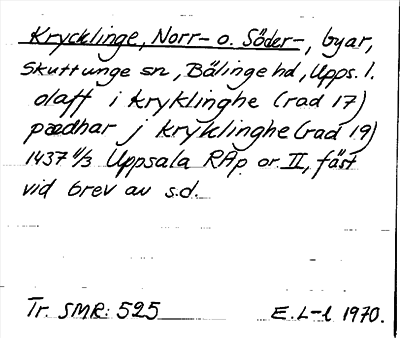 Krycklinge, Norr- o. Söder-, byar,
Skuttunge sn, Bälinge hd, Upps. l.
olaff i kryklinghe (rad 17)
pædhar j kryklinghe (rad 19)
1437 11/3 Uppsala RAp or. II, fäst
vid brev av s.d.
Tr. SMR: 525 E. L-l 1970.